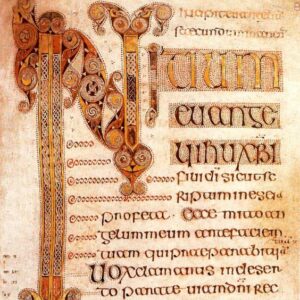 secundum
INITIUM
euange
lii ihu xpi
fili di sicut sc
riptum in esai
profeta ecce mitto an
gelum meum ante faciem
tuam qui praeparabit uia
uox clamantis in deser
to parate uiam dni rec